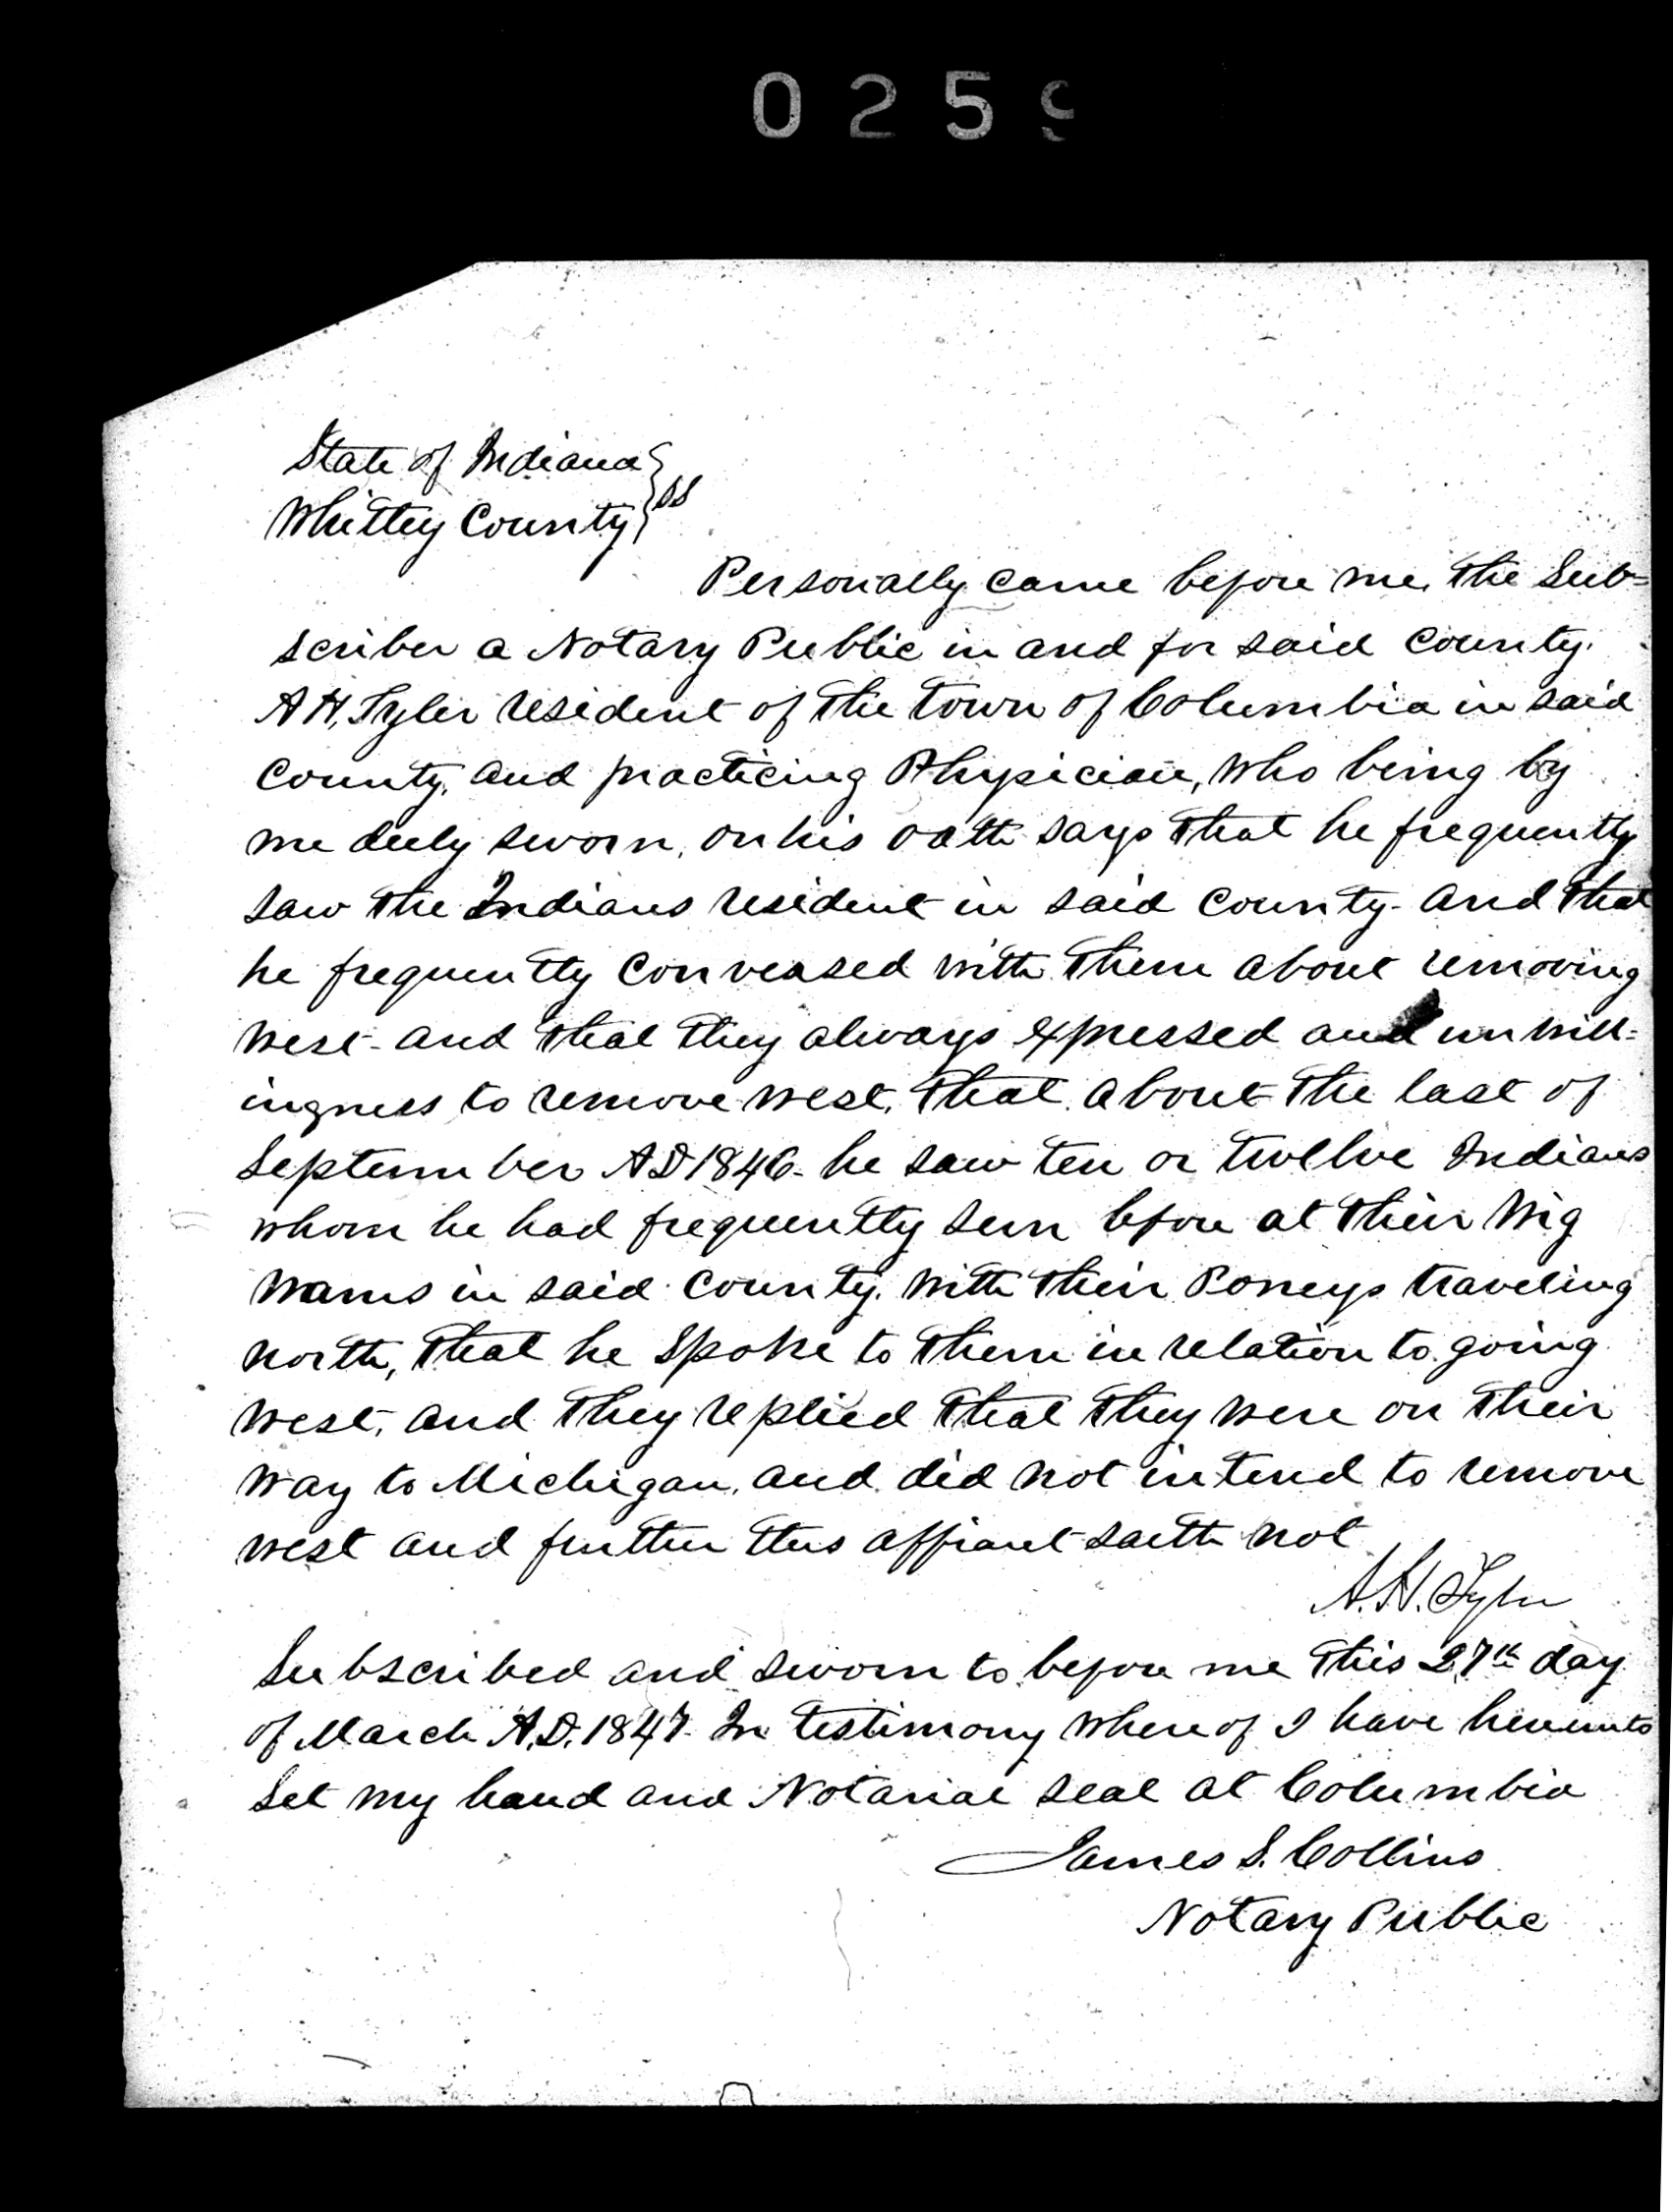 0259
State of Indiana }
Whitley County } ss
Personally came before me, the Sub=
scriber a Notary Public in and for said County.
A H, Tyler resident of the town of Columbia in said
County, and practicing Physician, who being by
me duly sworn, on his oath says that he frequently
saw the Indians resident in said County - and that
he frequently conversed with them about removing
west - and that they always expressed and unwill=
ingness to remove west. That about the last of
September AD 1846 - he saw ten or twelve Indians
whom he had frequently seen before at their Wig
wams in said County. with their Poneys traveling
north, that he spoke to them in relation to going
west, and they replied that they were on their
way to Michigan, and did not intend to remove
west and further this affiant saith not
A. H. Tyler
Subscribed and sworn to before me this 27th day
of March A.D. 1847. In testimony where of I have hereunto
set my hand and Notarial seal at Columbia
James S. Collins
Notary Public